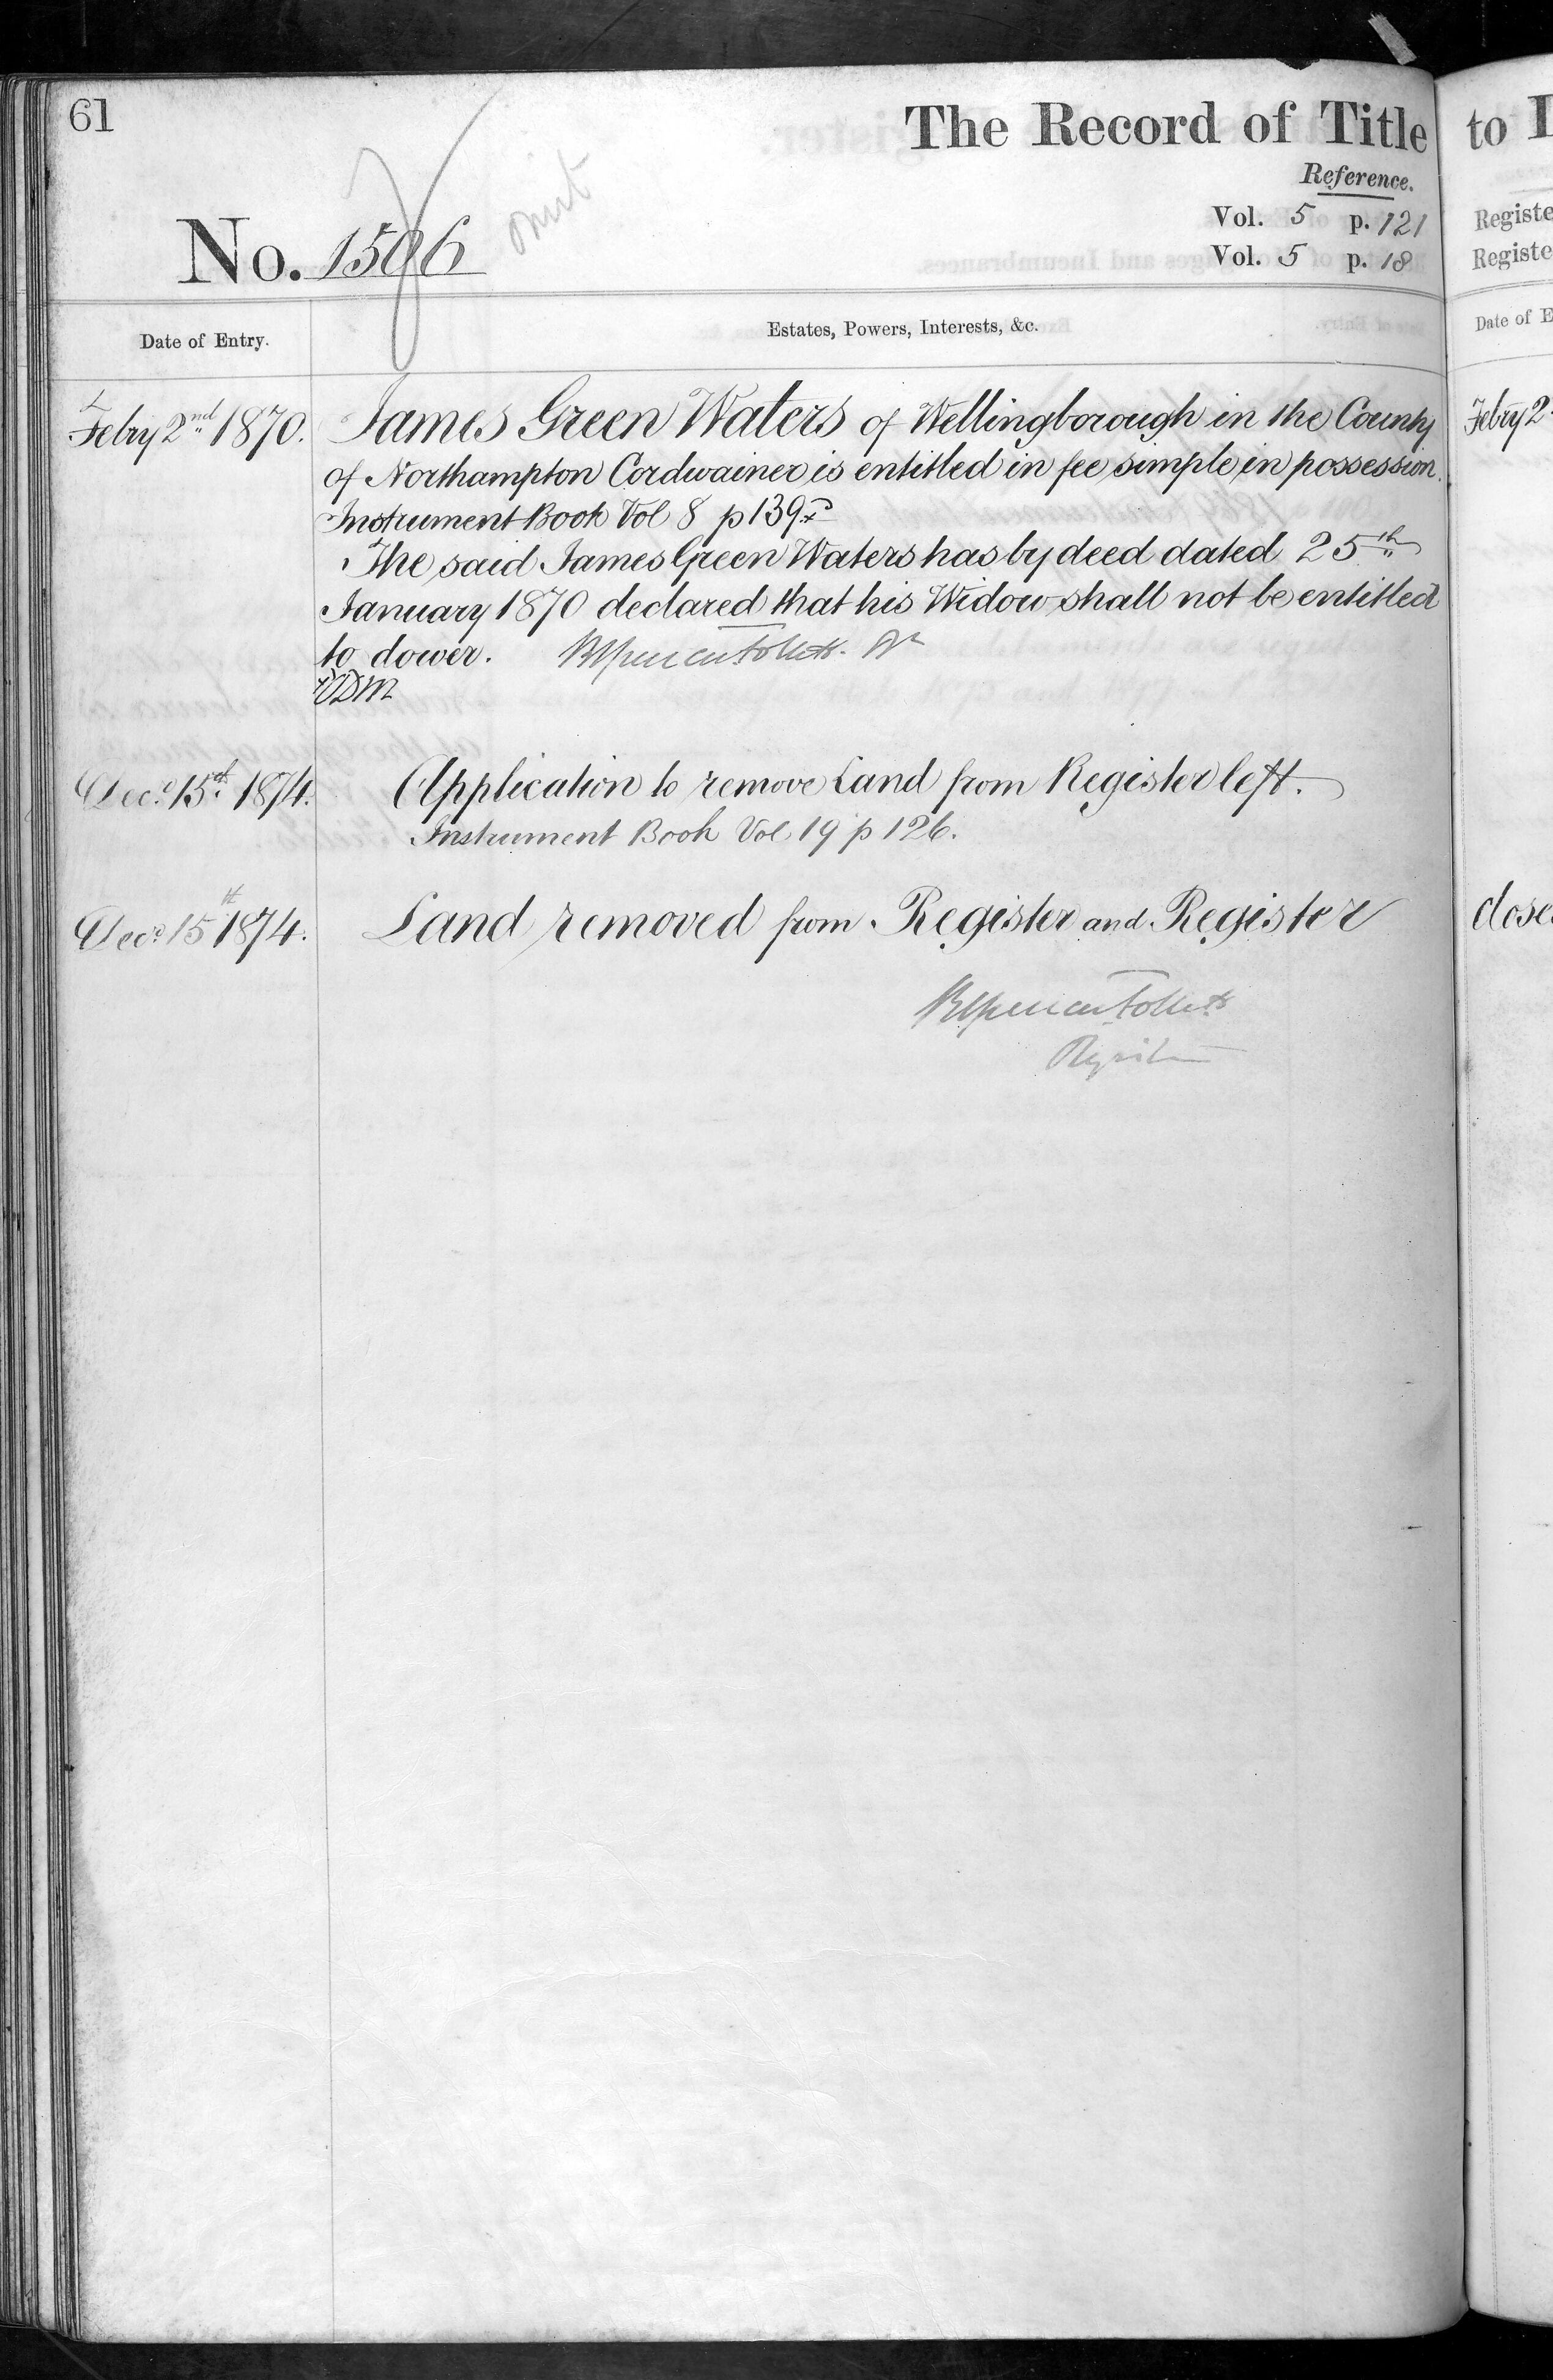 61
The Record of Title
Reference.
Vol. 5 p. 121
Vol. 5 p. 18
No. 1506
omit
Date of Entry.
Estates, Powers, Interests, &c.
Febry 2nd 1870. James Green Waters of Wellingborough in the County
of Northampton Cordwainer is entitled in fee simple in possession.
Instrument Book Vol 8 p 139.
The said James Green Waters has by deed dated 25th
January 1870 declared that his Widow shall not be entitled
to dower. Brent Spencer Follett.
Decr 15th 1874. Application to remove Land from Register left.
Instrument Book Vol. 19 p 126.
Decr 15th 1874. Land removed from Register and Register
Brent Spencer Follett
Registrar
to
Registe
Registe
Date of E
Febry 2
close